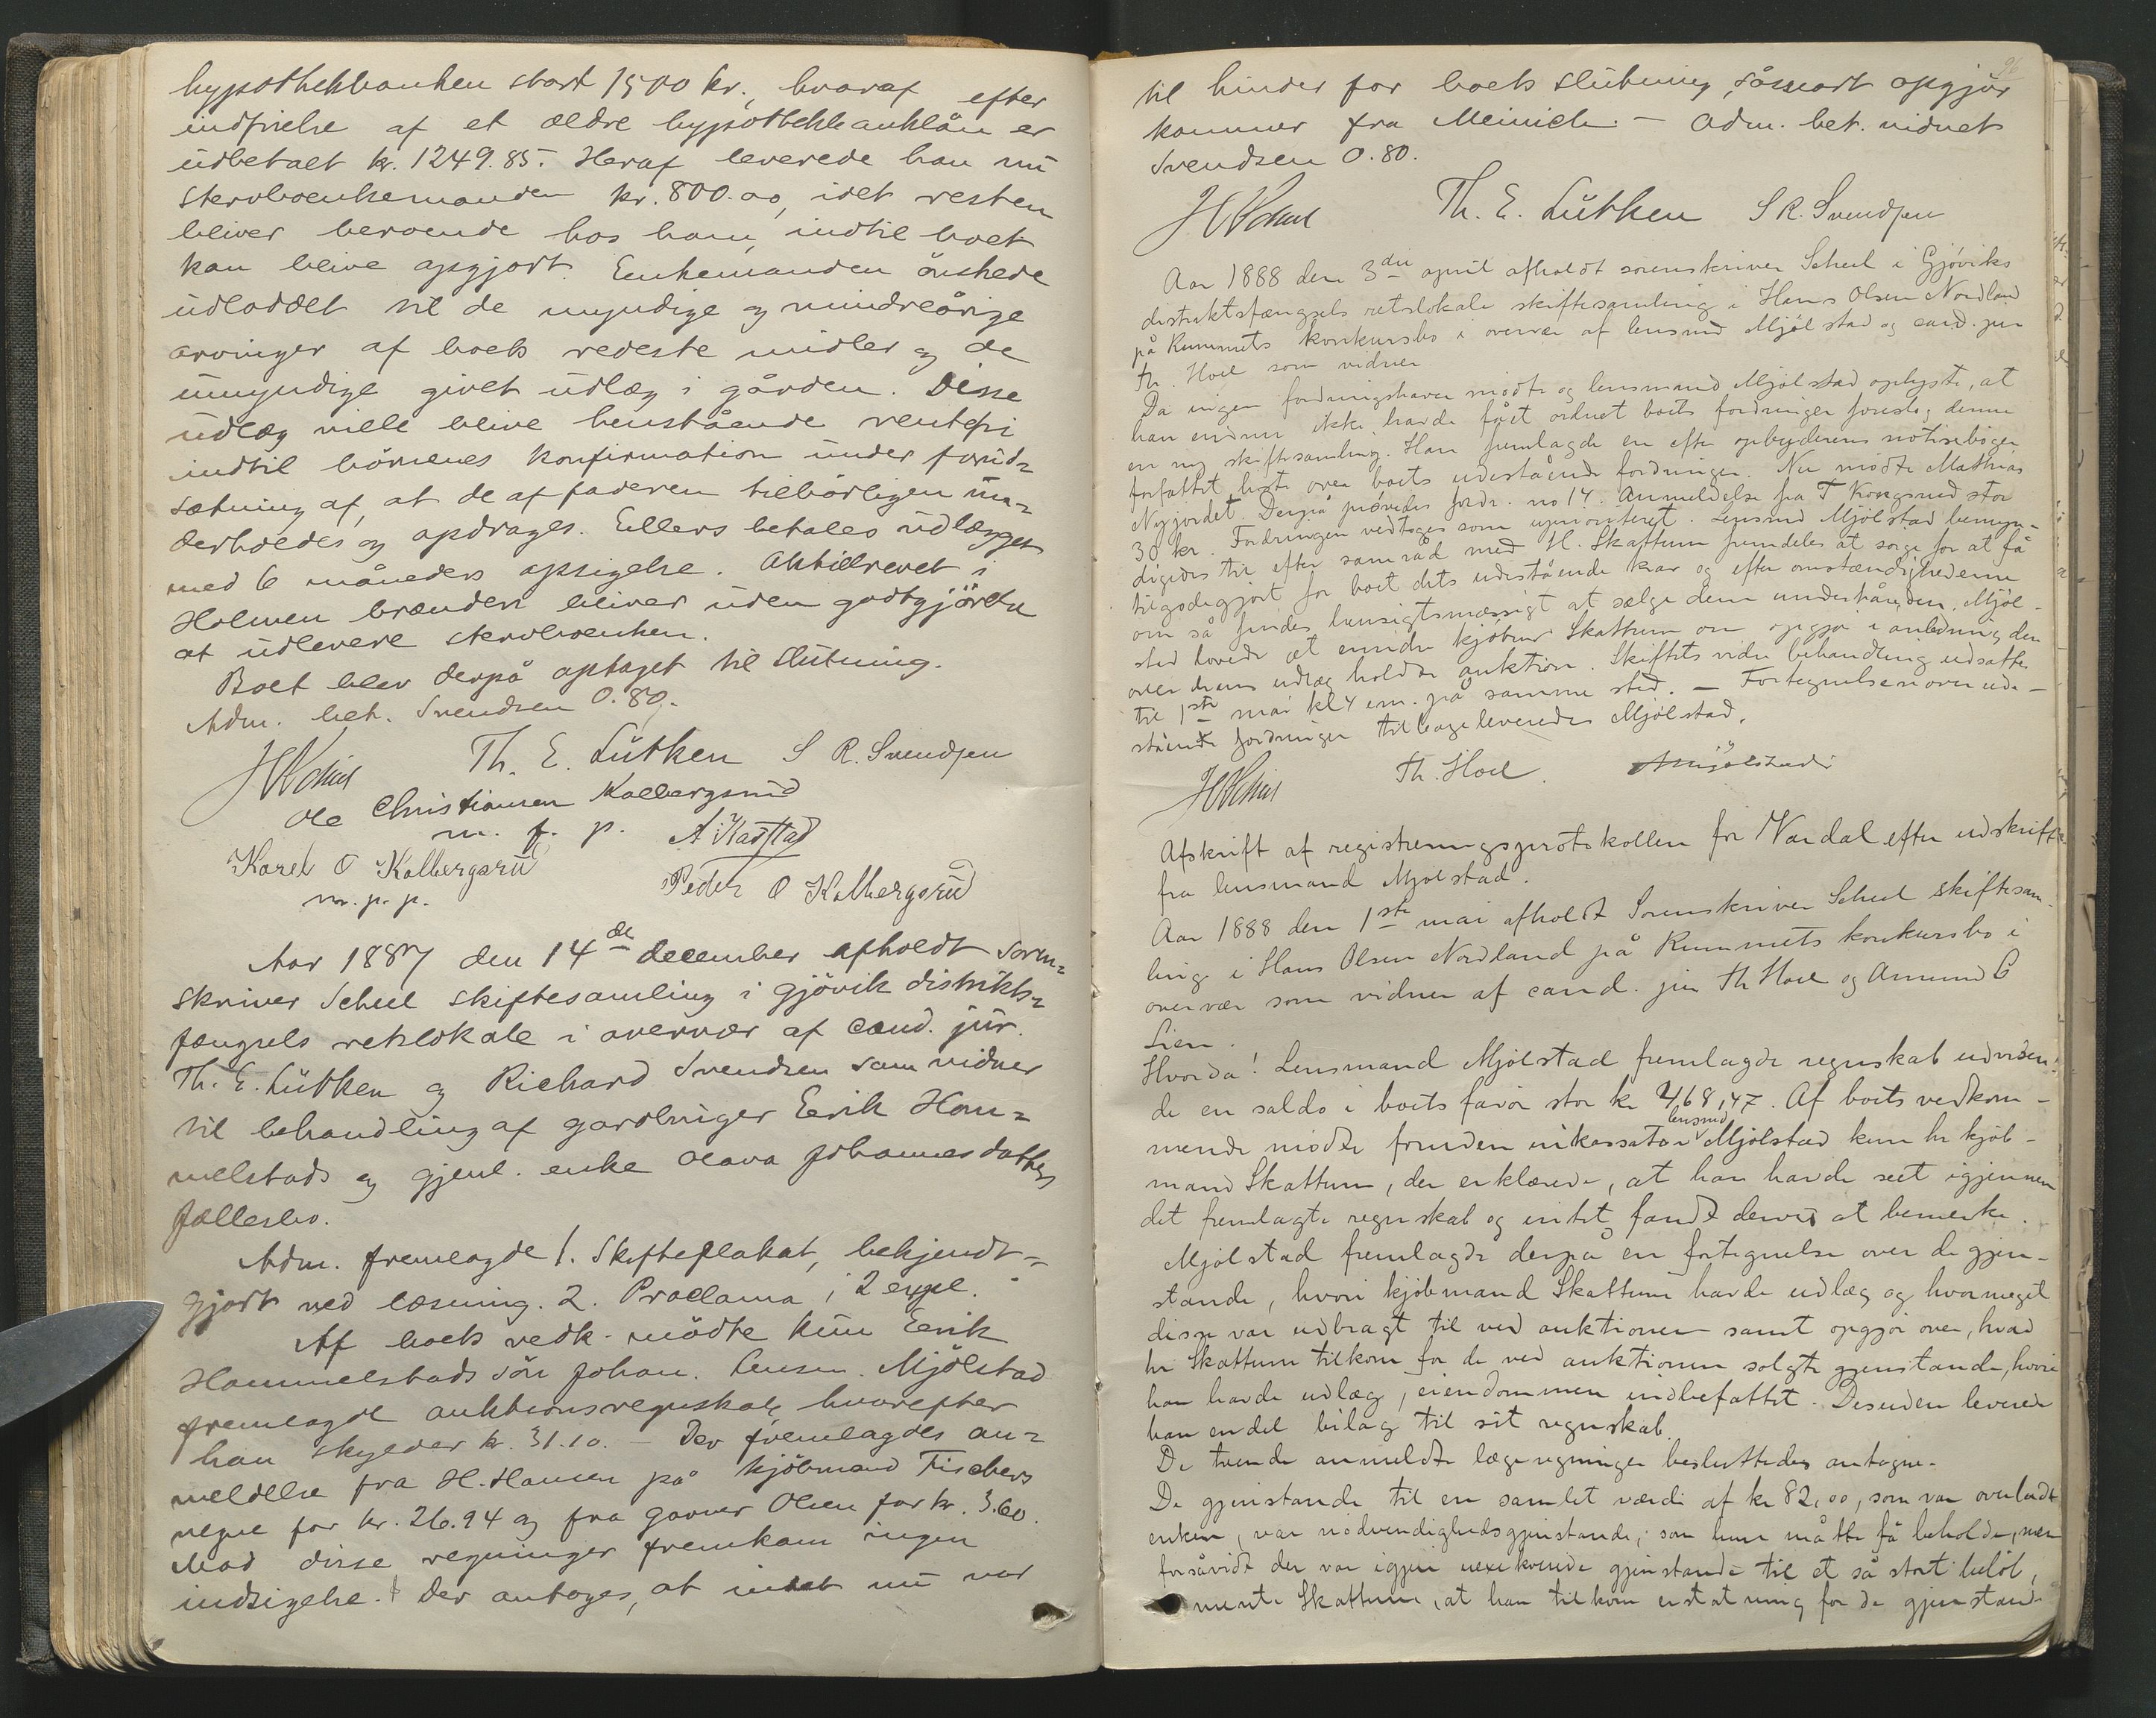 hypothekbanken stort 1500 kr., hvoraf efter
indfrielse af et ældre hypothekbanklån er
udbetalt kr. 1249.85. Heraf leverede han nu
stervboenkemanden kr. 800.00, idet resten
bliver beroende hos ham, indtil boet
kan blive opgjort. Enkemanden önskede
udloddet til de myndige og mindreårige
arvinger af boets redeste midler og de
umyndige givet udlæg i gården. Disse
udlæg ville blive henstående rentefri
indtil börnenes konfirmation under forud=
sætning af, at de af faderen tilbörligen un=
derholdes og opdrages. Ellers betales udlægget
med 6 måneders opsigelse. Aktiebrevet i
Holmen brænderi bliver uden godtgjörelse
at udlevere stervboenken.
Boet blev derpå optaget til slutning.
Adm. bet. Svendsen 0.80.
Th. E. Lütken S R. Svendsen
Ole Christiansen Kolbergsrud
m. f. p. A. Kadstad
Karel O Kolbergsrud
m. p. p. Peder O Kolbergsrud
Aar 1887 den 14de december afholdt soren=
skriver Scheel skiftesamling i Gjövik distrikts=
fængsels retslokale i overvær af cand. jur.
Th. E. Lütken og Richard Svendsen som vidner
til behandling af gardbruger Eerik Hom=
melstads og gjenl. enke Olava Johannesdatters
fællesbo.
Adm. fremlagde 1. Skifteplakat, bekjendt=
gjort ved læsning. 2. Proclama i 2 expl.
Af boets vedk. mödte kun Eerik
Hammelstads sön Johan. Lensm. Mjölstad
fremlagde auktionsregnskab, hvorefter
han skylder kr. 31.10. – Der fremlagdes an=
meldelse fra H. Hansen på kjöbmand Fischers
vegne for kr. 26.94 og fra garver Olsen for kr. 3.60.
Mod disse regninger fremkom ingen
indsigelse. Der antoges, at intet nu var
til hinder for boets slutning, såsnart opgjör
kommer fra Meinich. – Adm. bet. vidnet
Svendsen 0.80.
Th. E. Lütken S R. Svendsen
Aar 1888 den 3die april afholdt sorenskriver Scheel i Gjöviks
distriktsfængsels retslokale skiftesamling i Hans Olsen Nordland
på Rummets konkursbo i overvær af lensmd Mjölstad og cand. jur
Th. Hoel som vidner
Da ingen fordringshaver mödte og lensmand Mjölstad oplyste, at
han endnu ikke havde fået ordnet boets fordringer foreslog denne
en ny skiftesamling. Han fremlagde en efter opbyderens notisebøger
forfattet liste over boets udestående fordringer. Nu mödte Mathias
Nyjordet. Derpå prövedes fordr. no 14. Anmeldelse fra T Kongsrud stor
30 kr. Fordringen vedtages som uprioriteret. Lensmd Mjölstad bemyn-
digedes til efter samråd med H. Skattum fremdeles at sørge for at få
tilgodegjort for boet dets udestående krav og efter omstændighederne
om så findes hensigtsmæssigt at sælge dem underhånden. Mjöl-
stad lovede at minde kjöbmd Skattum om opgjör i anledning den
over hans udlæg holdte auktion. Skiftets vidre behandling udsattes
til 1ste mai kl 4 em. på samme sted. – Fortegnelsen over ude-
stående fordringer tilbageleveredes Mjölstad.
Th. Hoel. AMjölstad
Afskrift af registreringsprotokollen for Vardal efter udskrift
fra lensmand Mjölstad.
Aar 1888 den 1ste mai afholdt Sorenskriver Scheel skiftesam-
ling i Hans Olsen Nordland på Rummets konkursbo i
overvær som vidner af cand. jur Th Hoel og Amund C
Lien.
Hvorda! Lensmand Mjölstad fremlagde regnskab udvisen-
de en saldo i boets favör stor kr 468,47. Af boets vedkom-
mende mödte foruden inkassator lensmd Mjölstad kun hr kjöb-
mand Skattum, der erklærede, at han havde seet igjennem
det fremlagte regnskab og intet fandt derved at bemerke.
Mjölstad fremlagde derpå en fortegnelse over de gjen-
stande, hvori kjöbmand Skattum havde udlæg og hvormeget
disse var udbragt til ved auktionen samt opgjör over, hvad
hr Skattum tilkom for de ved auktionen solgte gjenstande, hvori
han havde udlæg, eiendommen indbefattet. Desuden leverede
han en del bilag til sit regnskab.
De tvende anmeldte lægeregninger besluttedes antagne.
De gjenstande til en samlet værdi af kr 82,00, som var overladt
enken, var nödvendighedsgjenstande, som hun måtte få beholde, men
forsåvidt der var igjen uexekverede gjenstande til et så stort belöb,
mente Skattum, at han tilkom erstatning for de gjenstande